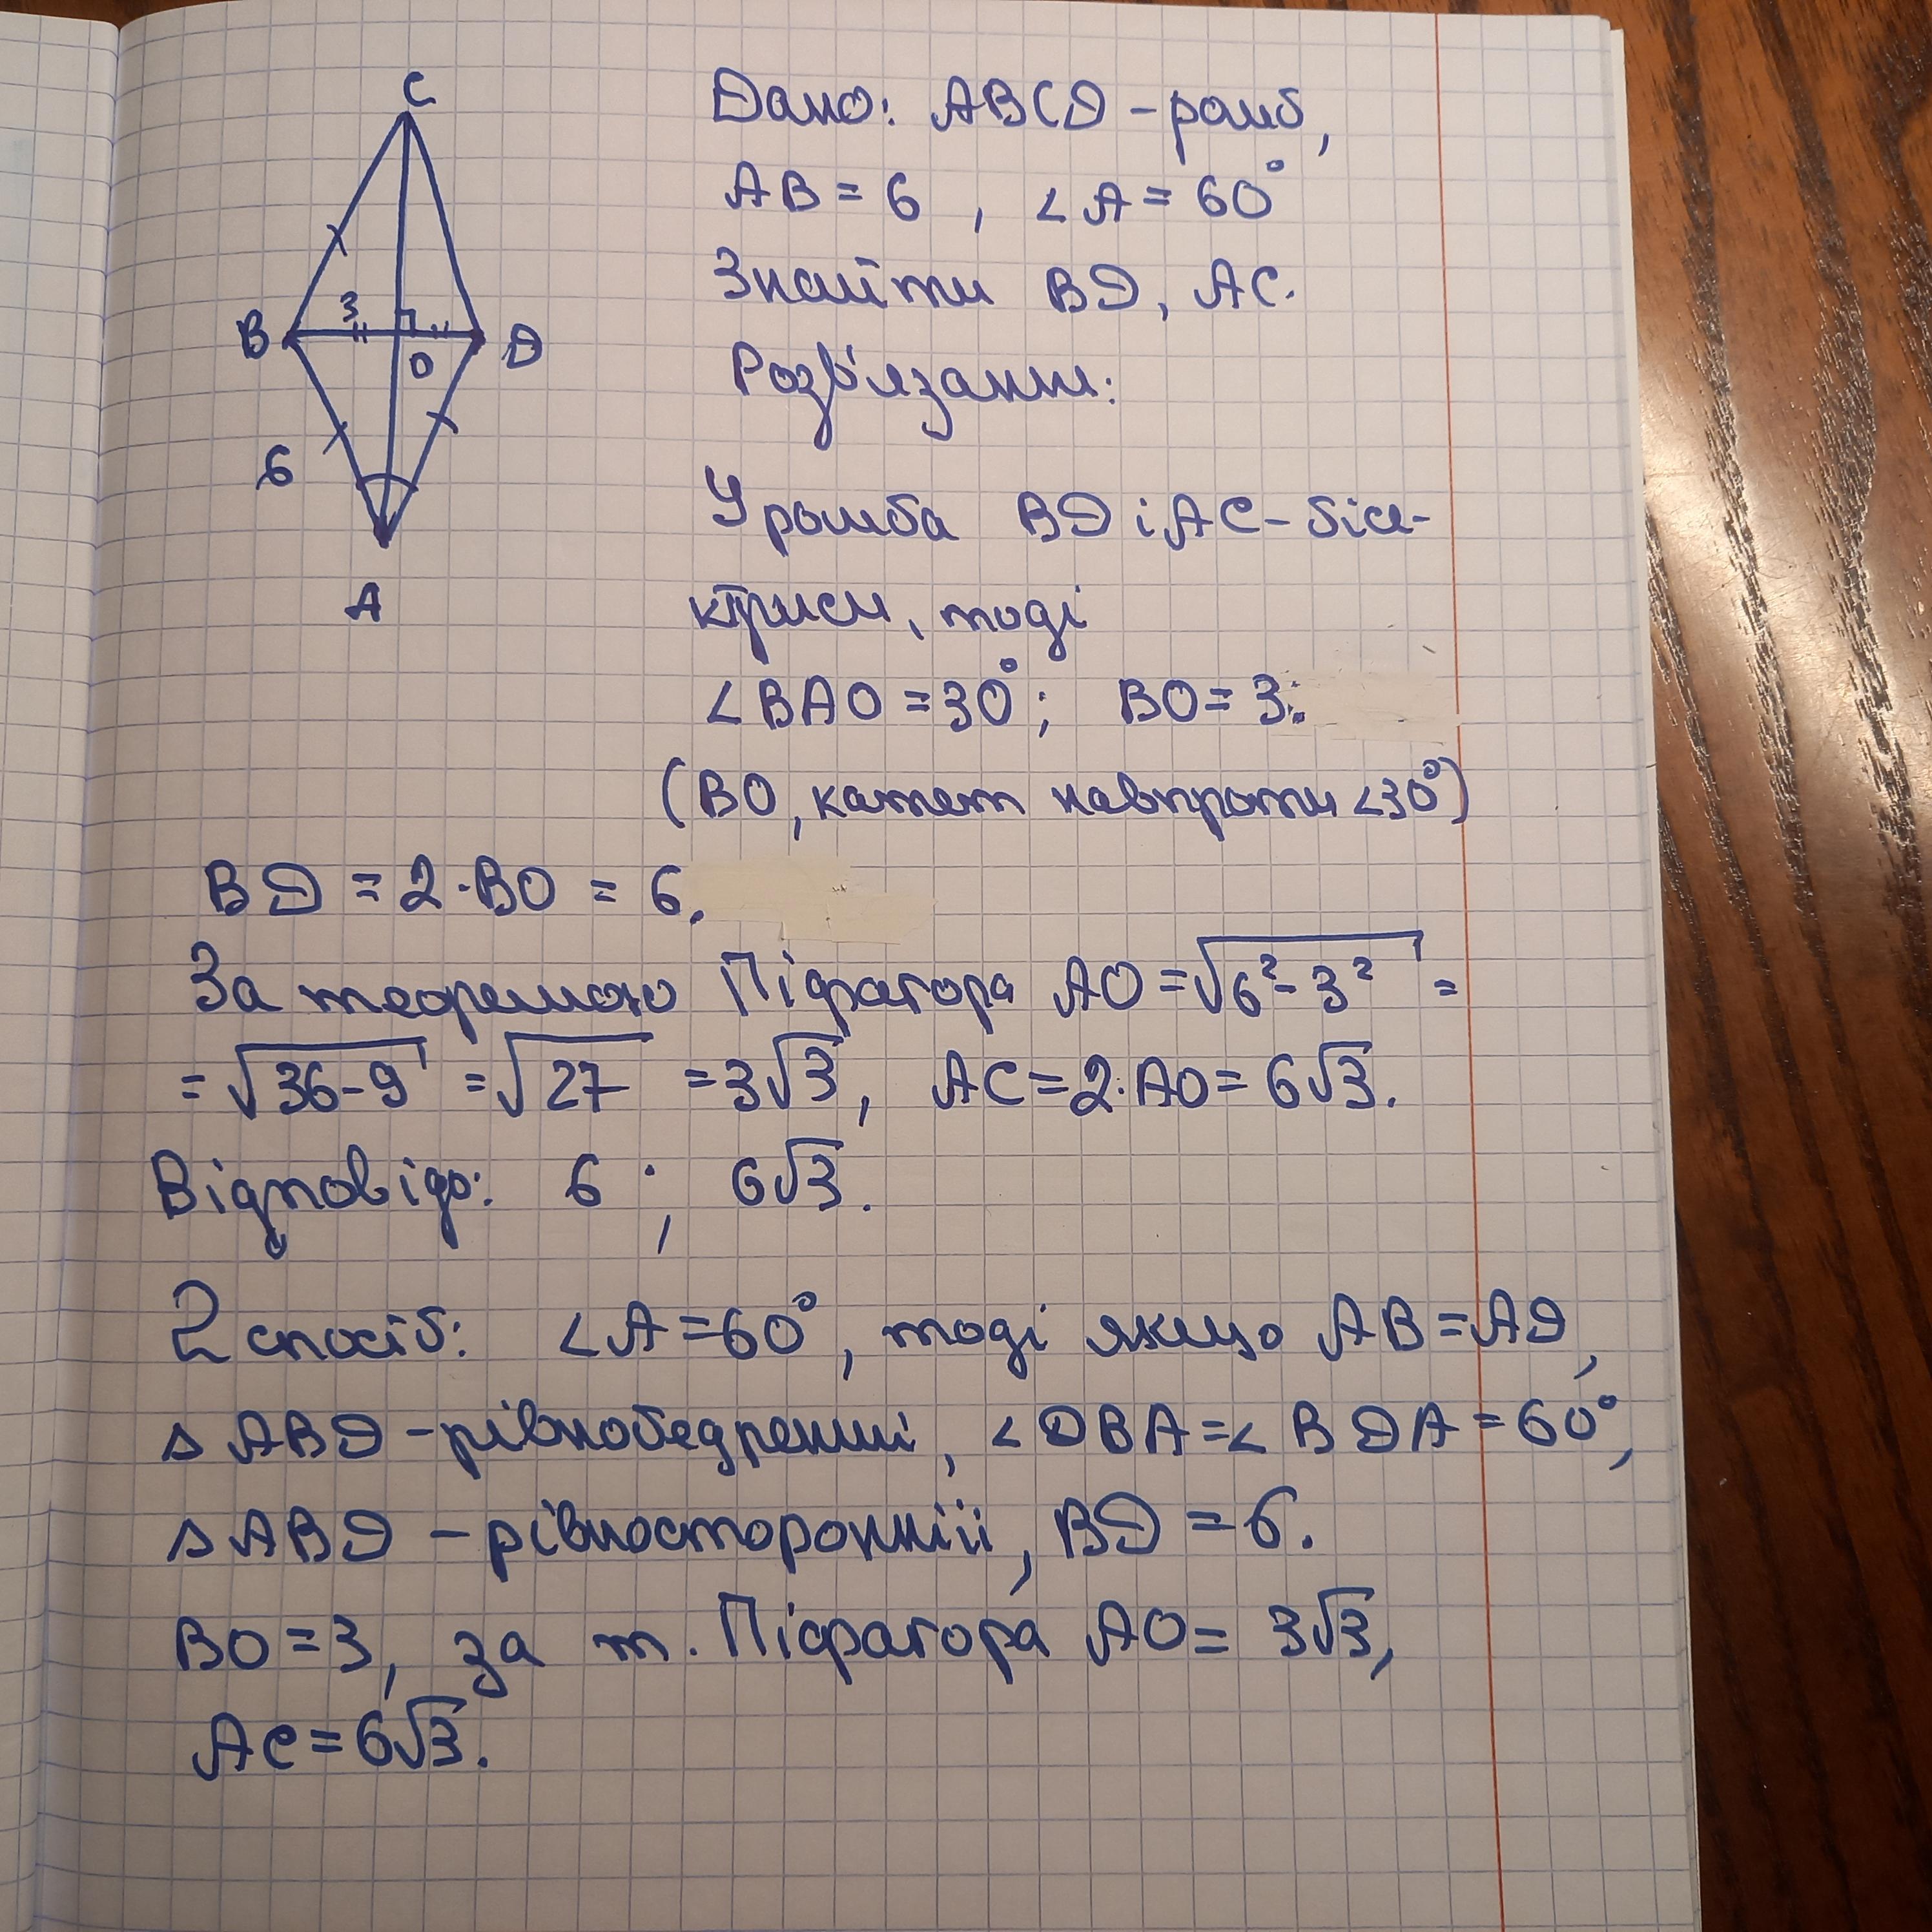 C
B
3
O
D
6
A
Дано: ABCD - ромб,
AB = 6 , ∠A = 60°
Знайти BD, AC.
Розв'язання:
У ромба BD і AC - бісе-
ктриси, тоді
∠BAO = 30°; BO = 3.
(BO, катет навпроти ∠30°)
BD = 2·BO = 6.
За теоремою Піфагора AO = √(6² - 3²) =
= √(36 - 9) = √27 = 3√3, AC = 2·AO = 6√3.
Відповідь: 6 ; 6√3.
2 спосіб: ∠A = 60°, тоді якщо AB = AD,
△ABD - рівнобедрений, ∠DBA = ∠BDA = 60°,
△ABD - рівносторонній, BD = 6.
BO = 3, за т. Піфагора AO = 3√3,
AC = 6√3.